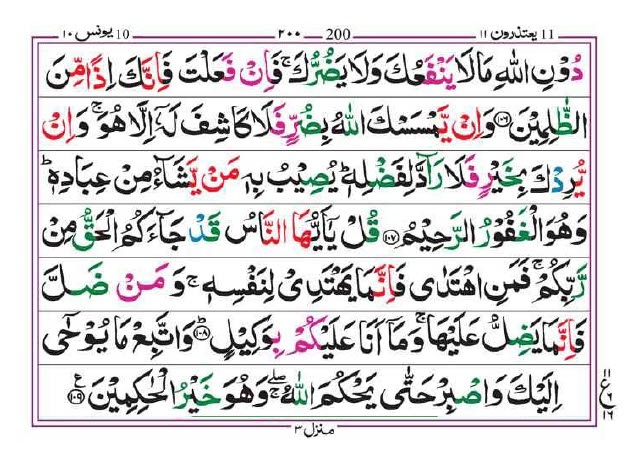 11 يعتذرون ١١ 200 ٢٠٠ 10 يونس ١٠
دُوْنِ اللّٰهِ مَا لَا يَنْفَعُكَ وَلَا يَضُرُّكَ ۚ فَاِنْ فَعَلْتَ فَاِنَّكَ اِذًا مِّنَ
الظّٰلِمِيْنَ ﴿۱۰۶﴾ وَاِنْ يَّمْسَسْكَ اللّٰهُ بِضُرٍّ فَلَا كَاشِفَ لَهٗۤ اِلَّا هُوَ ۚ وَاِنْ
يُّرِدْكَ بِخَيْرٍ فَلَا رَآدَّ لِفَضْلِهٖ ؕ يُصِيْبُ بِهٖ مَنْ يَّشَآءُ مِنْ عِبَادِهٖ ؕ
وَهُوَ الْغَفُوْرُ الرَّحِيْمُ ﴿۱۰۷﴾ قُلْ يٰۤاَيُّهَا النَّاسُ قَدْ جَآءَكُمُ الْحَقُّ مِنْ
رَّبِّكُمْ ۚ فَمَنِ اهْتَدٰى فَاِنَّمَا يَهْتَدِىْ لِنَفْسِهٖ ۚ وَمَنْ ضَلَّ
فَاِنَّمَا يَضِلُّ عَلَيْهَا ۚ وَمَاۤ اَنَا عَلَيْكُمْ بِوَكِيْلٍ ﴿۱۰۸﴾ ؕ وَاتَّبِعْ مَا يُوْحٰۤى
اِلَيْكَ وَاصْبِرْ حَتّٰى يَحْكُمَ اللّٰهُ ۖۚ وَهُوَ خَيْرُ الْحٰكِمِيْنَ ﴿۱۰۹﴾ ع
١١
ع
٦
١٦
منزل ٣